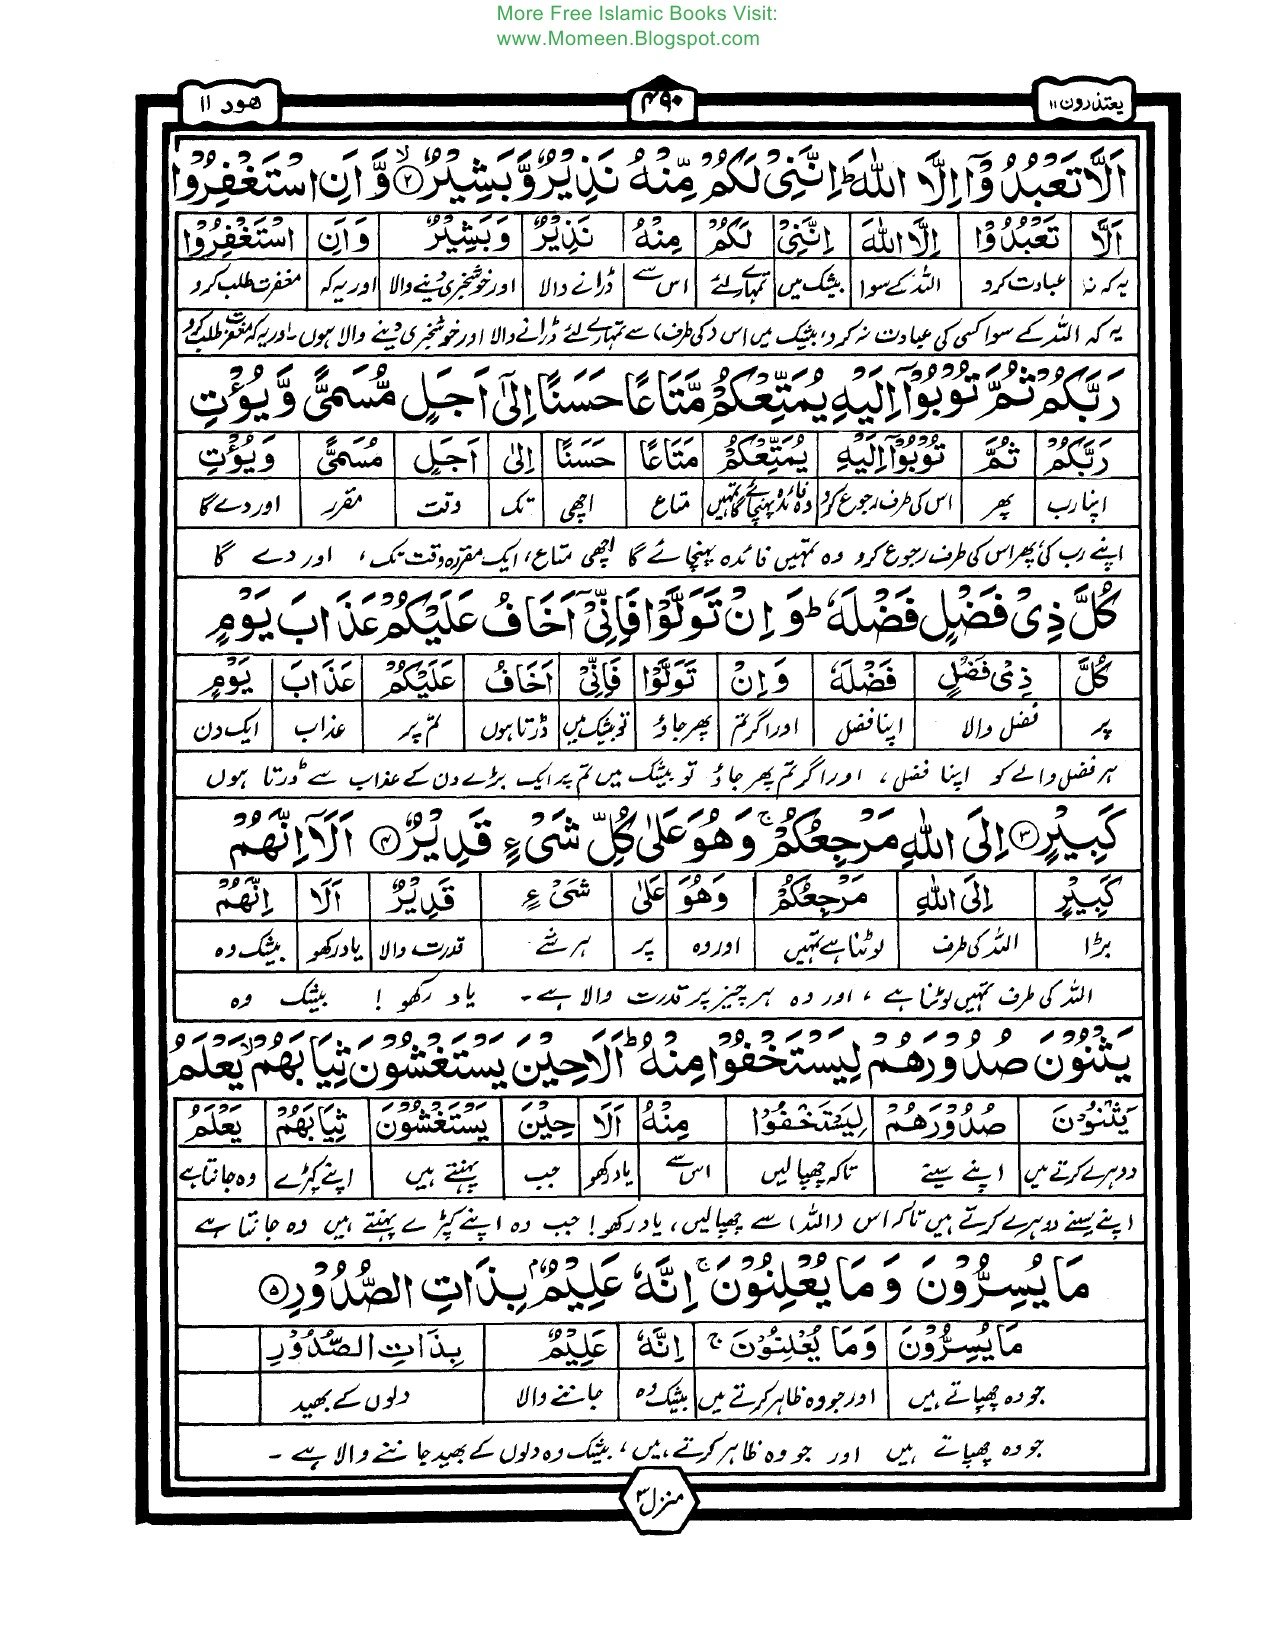 More Free Islamic Books Visit:
www.Momeen.Blogspot.com
یعتذرون ۱۱ ۴۹۰ ھود ۱۱
اَلَّا تَعْبُدُوْۤا اِلَّا اللّٰهَ ؕ اِنَّنِیْ لَكُمْ مِّنْهُ نَذِیْرٌ وَّبَشِیْرٌ ۙ﴿۲﴾ وَّ اَنِ اسْتَغْفِرُوْا
اَلَّا تَعْبُدُوْا اِلَّا اللّٰهَ اِنَّنِیْ لَكُمْ مِنْهُ نَذِیْرٌ وَبَشِیْرٌ وَاَنِ اسْتَغْفِرُوْا
یہ کہ نہ عبادت کرو اللہ کے سوا بیشک میں تمہارے لئے اس سے ڈرانے والا اور خوشخبری دینے والا اور یہ کہ مغفرت طلب کرو
یہ کہ اللہ کے سوا کسی کی عبادت نہ کرو، بیشک میں اس (کی طرف) سے تمہارے لئے ڈرانے والا اور خوشخبری دینے والا ہوں۔ اور یہ کہ مغفرت طلب کرو
رَبَّكُمْ ثُمَّ تُوْبُوْۤا اِلَیْهِ یُمَتِّعْكُمْ مَّتَاعًا حَسَنًا اِلٰۤی اَجَلٍ مُّسَمًّی وَّ یُؤْتِ
رَبَّكُمْ ثُمَّ تُوْبُوْۤا اِلَیْهِ یُمَتِّعْكُمْ مَتَاعًا حَسَنًا اِلٰی اَجَلٍ مُسَمًّی وَیُؤْتِ
اپنا رب پھر اس کی طرف رجوع کرو وہ فائدہ پہنچائے گا تمہیں متاع اچھی تک وقت مقرر اور دے گا
اپنے رب کی پھر اس کی طرف رجوع کرو وہ تمہیں فائدہ پہنچائے گا اچھی متاع، ایک مقررہ وقت تک، اور دے گا
كُلَّ ذِیْ فَضْلٍ فَضْلَهٗ ؕ وَ اِنْ تَوَلَّوْا فَاِنِّیْۤ اَخَافُ عَلَیْكُمْ عَذَابَ یَوْمٍ
كُلَّ ذِیْ فَضْلٍ فَضْلَهٗ وَاِنْ تَوَلَّوْا فَاِنِّیْ اَخَافُ عَلَیْكُمْ عَذَابَ یَوْمٍ
ہر فضل والا اپنا فضل اور اگر تم پھر جاؤ تو بیشک میں ڈرتا ہوں تم پر عذاب ایک دن
ہر فضل والے کو اپنا فضل، اور اگر تم پھر جاؤ تو بیشک میں تم پر ایک بڑے دن کے عذاب سے ڈرتا ہوں
كَبِیْرٍ ﴿۳﴾ اِلَی اللّٰهِ مَرْجِعُكُمْ ۚ وَ هُوَ عَلٰی كُلِّ شَیْءٍ قَدِیْرٌ ﴿۴﴾ اَلَاۤ اِنَّهُمْ
كَبِیْرٍ اِلَی اللّٰهِ مَرْجِعُكُمْ وَهُوَ عَلٰی شَیْءٍ قَدِیْرٌ اَلَا اِنَّهُمْ
بڑا اللہ کی طرف لوٹنا ہے تمہیں اور وہ پر ہر شے قدرت والا یاد رکھو بیشک وہ
اللہ کی طرف تمہیں لوٹنا ہے، اور وہ ہر چیز پر قدرت والا ہے۔ یاد رکھو! بیشک وہ
یَثْنُوْنَ صُدُوْرَهُمْ لِیَسْتَخْفُوْا مِنْهُ ؕ اَلَا حِیْنَ یَسْتَغْشُوْنَ ثِیَابَهُمْ ۙ یَعْلَمُ
یَثْنُوْنَ صُدُوْرَهُمْ لِیَسْتَخْفُوْا مِنْهُ اَلَا حِیْنَ یَسْتَغْشُوْنَ ثِیَابَهُمْ یَعْلَمُ
دوہرے کرتے ہیں اپنے سینے تاکہ چھپا لیں اس سے یاد رکھو جب پہنتے ہیں اپنے کپڑے وہ جانتا ہے
اپنے سینے دوہرے کرتے ہیں تاکہ اس (اللہ) سے چھپا لیں، یاد رکھو! جب وہ اپنے کپڑے پہنتے ہیں وہ جانتا ہے
مَا یُسِرُّوْنَ وَ مَا یُعْلِنُوْنَ ۚ اِنَّهٗ عَلِیْمٌۢ بِذَاتِ الصُّدُوْرِ ﴿۵﴾
مَا یُسِرُّوْنَ وَمَا یُعْلِنُوْنَ ۚ اِنَّهٗ عَلِیْمٌ بِذَاتِ الصُّدُوْرِ
جو وہ چھپاتے ہیں اور جو وہ ظاہر کرتے ہیں بیشک وہ جاننے والا دلوں کے بھید
جو وہ چھپاتے ہیں اور جو وہ ظاہر کرتے ہیں، بیشک وہ دلوں کے بھید جاننے والا ہے۔
منزل ۳